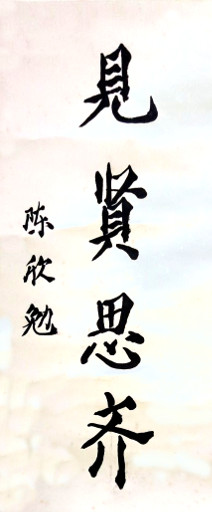 見賢思齐
陈欣勉